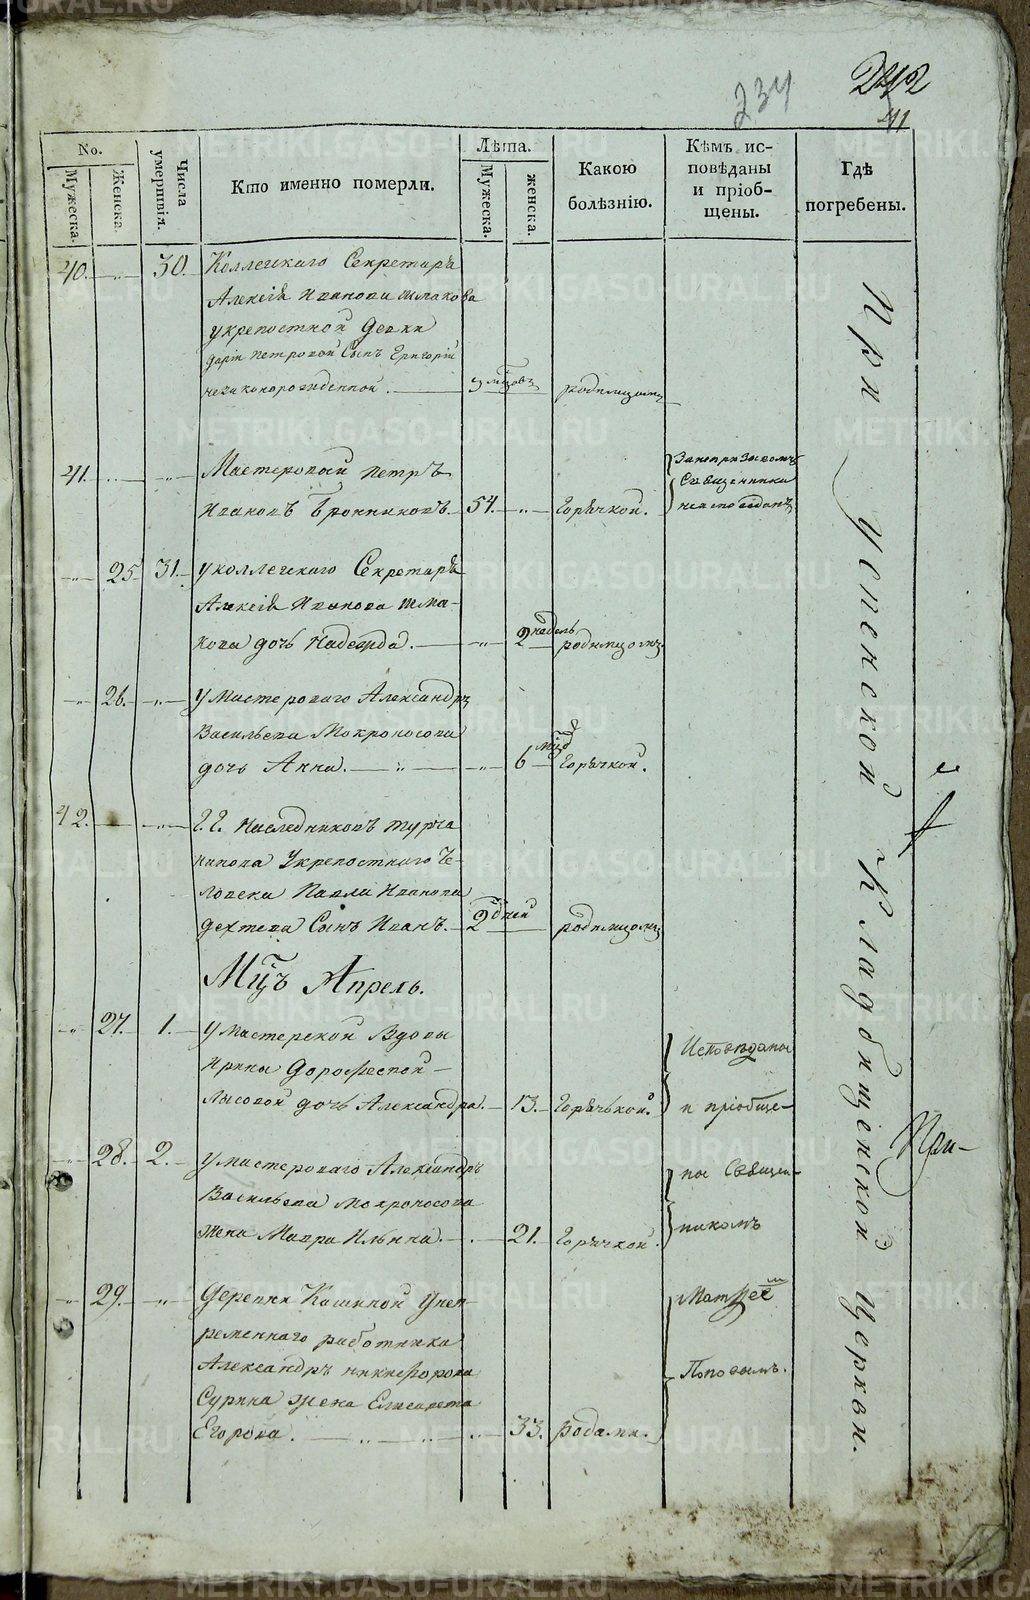 234
242
41
No.
Мужеска.
Женска.
Числа умершвія.
Кто именно померли.
Лѣта.
Мужеска.
женска.
Какою
болѣзнію.
Кѣмъ ис-
повѣданы
и пріоб-
щены.
Гдѣ
погребены.
40. „ 30. Коллегскаго Секретаря
Алексія Иванова Шмакова
у крепостной девки
Дарьи Петровой Сынъ Григорій
незаконорожденной 3 мцовъ родимцомъ
41. „ „ Мастеровой Петръ
Ивановъ Бронниковъ. 54. „ Горячкой.
Священника
неисповѣданъ
„ 25 31. у коллегскаго Секретаря
Алексія Иванова Шма-
кова дочь Надежда. „ 2 недель родимцомъ
„ 26. „ у Мастероваго Александра
Васильева Мокроносова
дочь Анна. „ „ 6 мцѣ Горячкой.
42. „ Г.Г. Наследниковъ Турча
нинова Укрепостнаго че-
ловека Павла Иванова
Дехтева Сынъ Иванъ. 2 дней родимцомъ
Мцъ Апрель.
„ 27. 1. у Мастерской Вдовы
Ирины Дорофеевой
Лысовой дочь Александра. 13. Горячькой.
Исповѣданы
и пріобще-
„ 28. 2. у мастероваго Александра
Васильева Мокроносова
жена Мавра Ильина. 21. Горячкой.
ны Священ-
никомъ
„ 29. „ Деревни Кашиной Унепременнаго работника
Александра Никифорова
Сурина жена Елисавета
Егорова. „ „ 33. родами.
Матѳеемъ
Поповымъ.
При Успенской Кладбищенской Церкви.
При-
METRIKI.GASO-URAL.RU